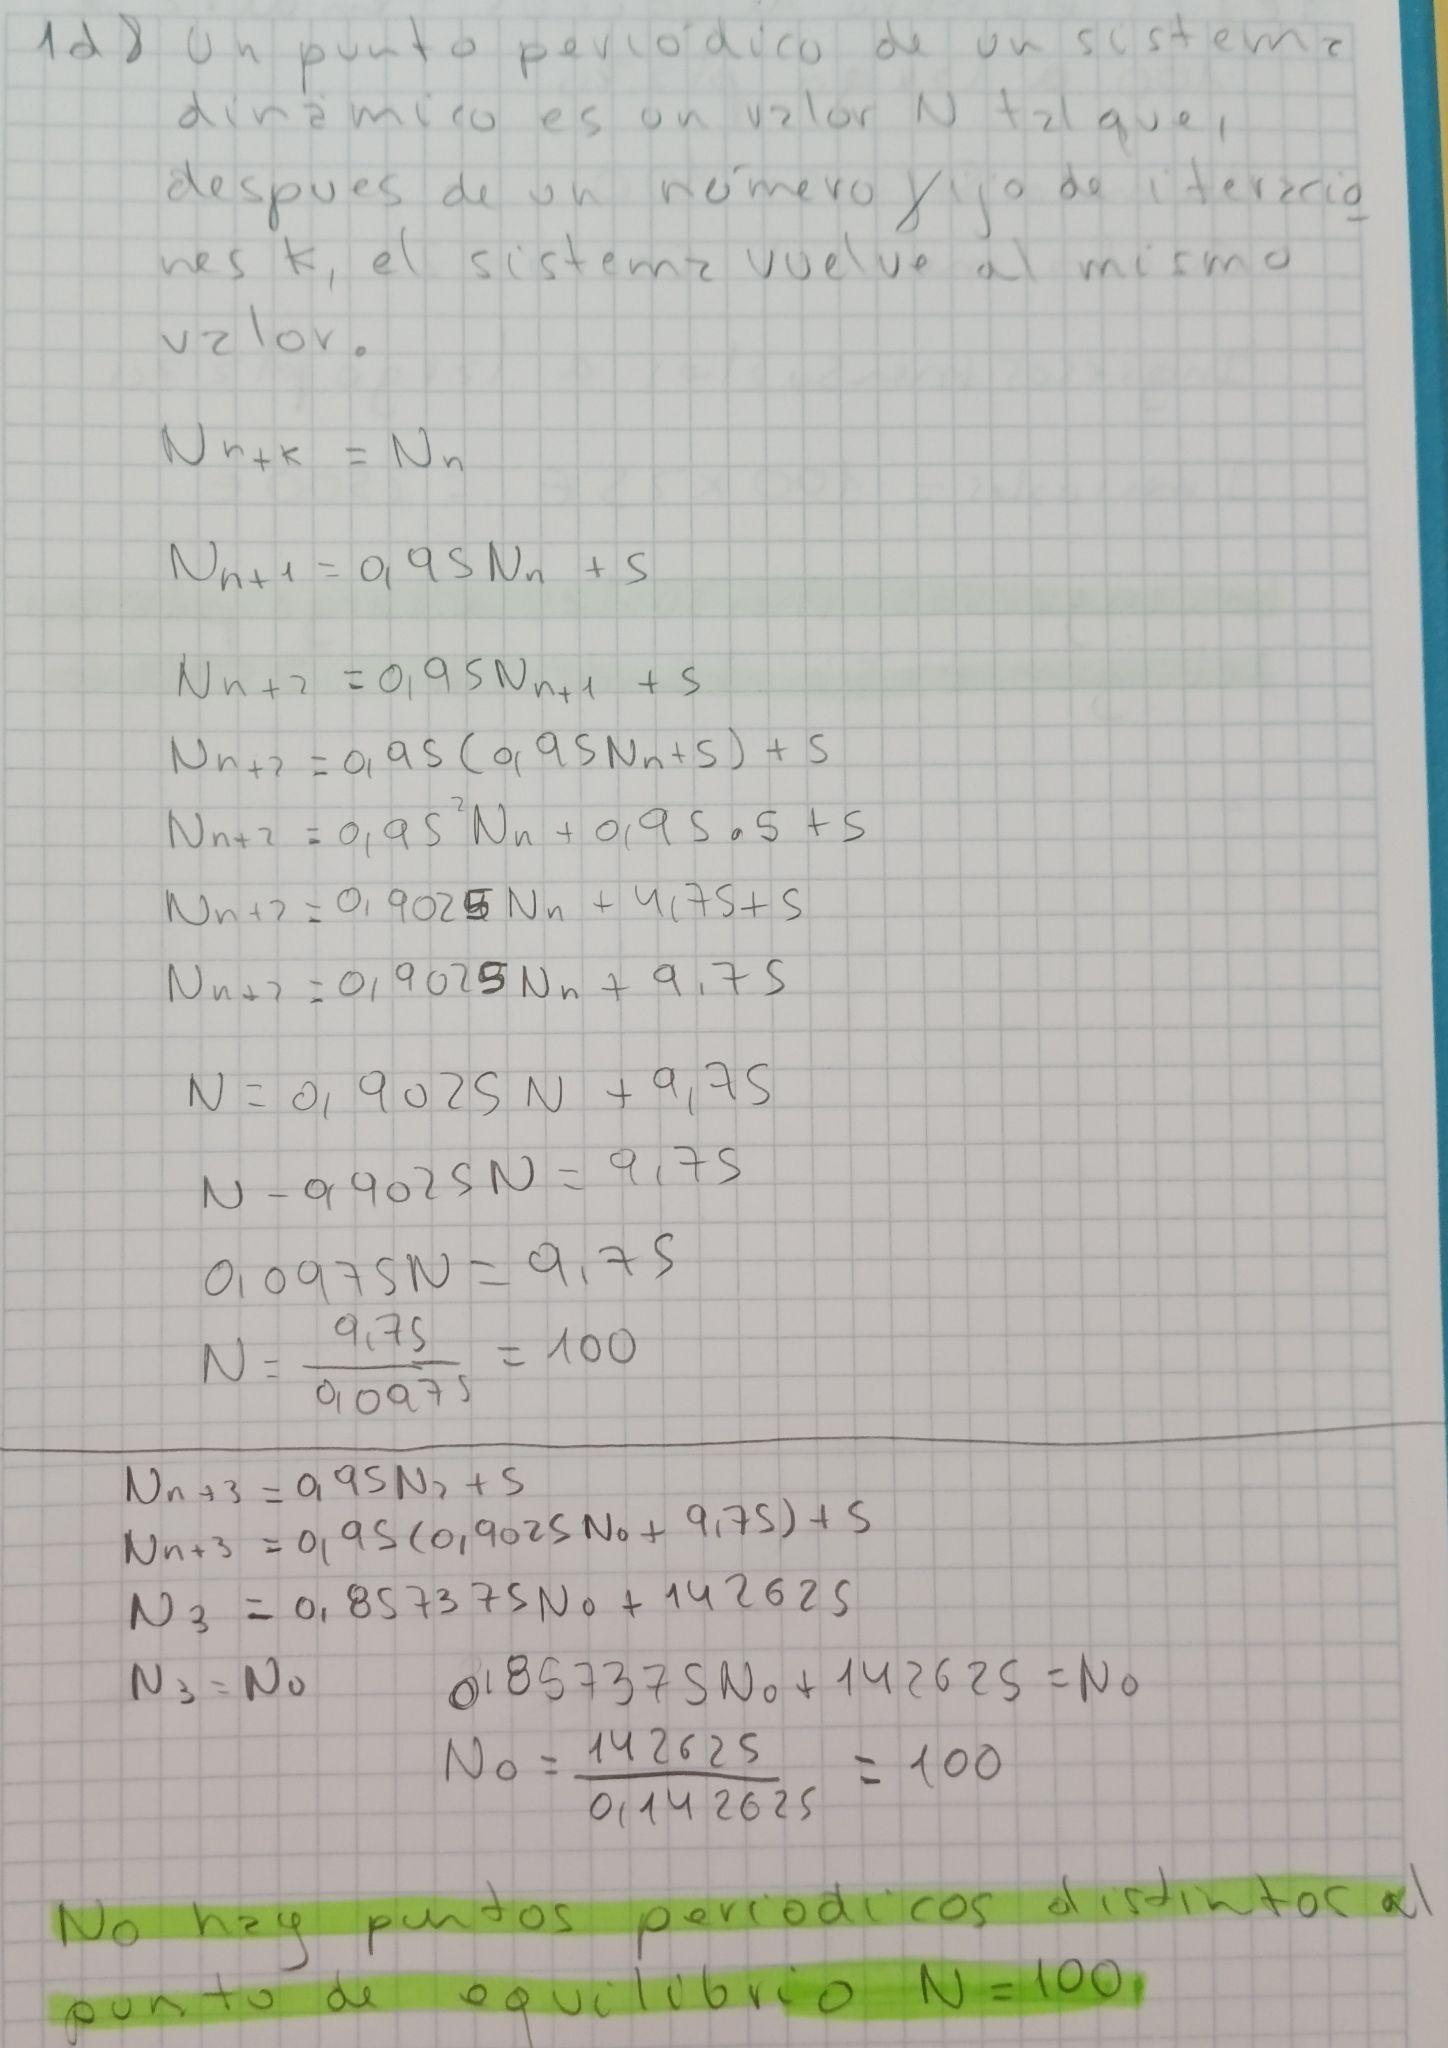 1d8 Un punto periódico de un sistema
dinámico es un valor N tal que,
despues de un número fijo de iteracio
nes k, el sistema vuelve al mismo
valor.
Nn+k = Nn
Nn+1 = 0,95Nn + 5
Nn+2 = 0,95Nn+1 + 5
Nn+2 = 0,95(0,95Nn+5) + 5
Nn+2 = 0,95²Nn + 0,95.5 + 5
Nn+2 = 0,9025Nn + 4,75+5
Nn+2 = 0,9025Nn + 9,75
N = 0,9025N + 9,75
N - 0,9025N = 9,75
0,0975N = 9,75
N = 9,75 / 0,0975 = 100
Nn+3 = 0,95N2 + 5
Nn+3 = 0,95(0,9025N0 + 9,75) + 5
N3 = 0,857375N0 + 142625
N3 = N0 0,857375N0 + 142625 = N0
N0 = 142625 / 0,142625 = 100
No hay puntos periodicos distintos al
punto de equilibrio N = 100.